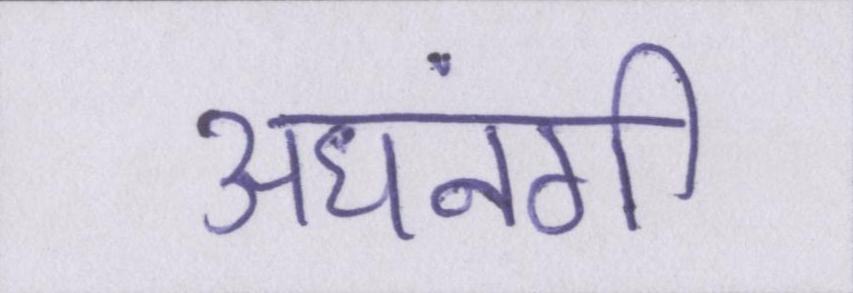 अधनंगी